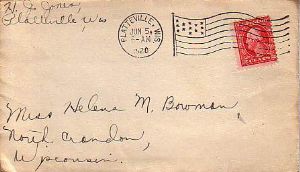 H. J. Jones,
Platteville, Wis
PLATTEVILLE, WIS.
JUN 5
-AM
1920
Miss Helena M. Bowman,
North Crandon,
Wisconsin.